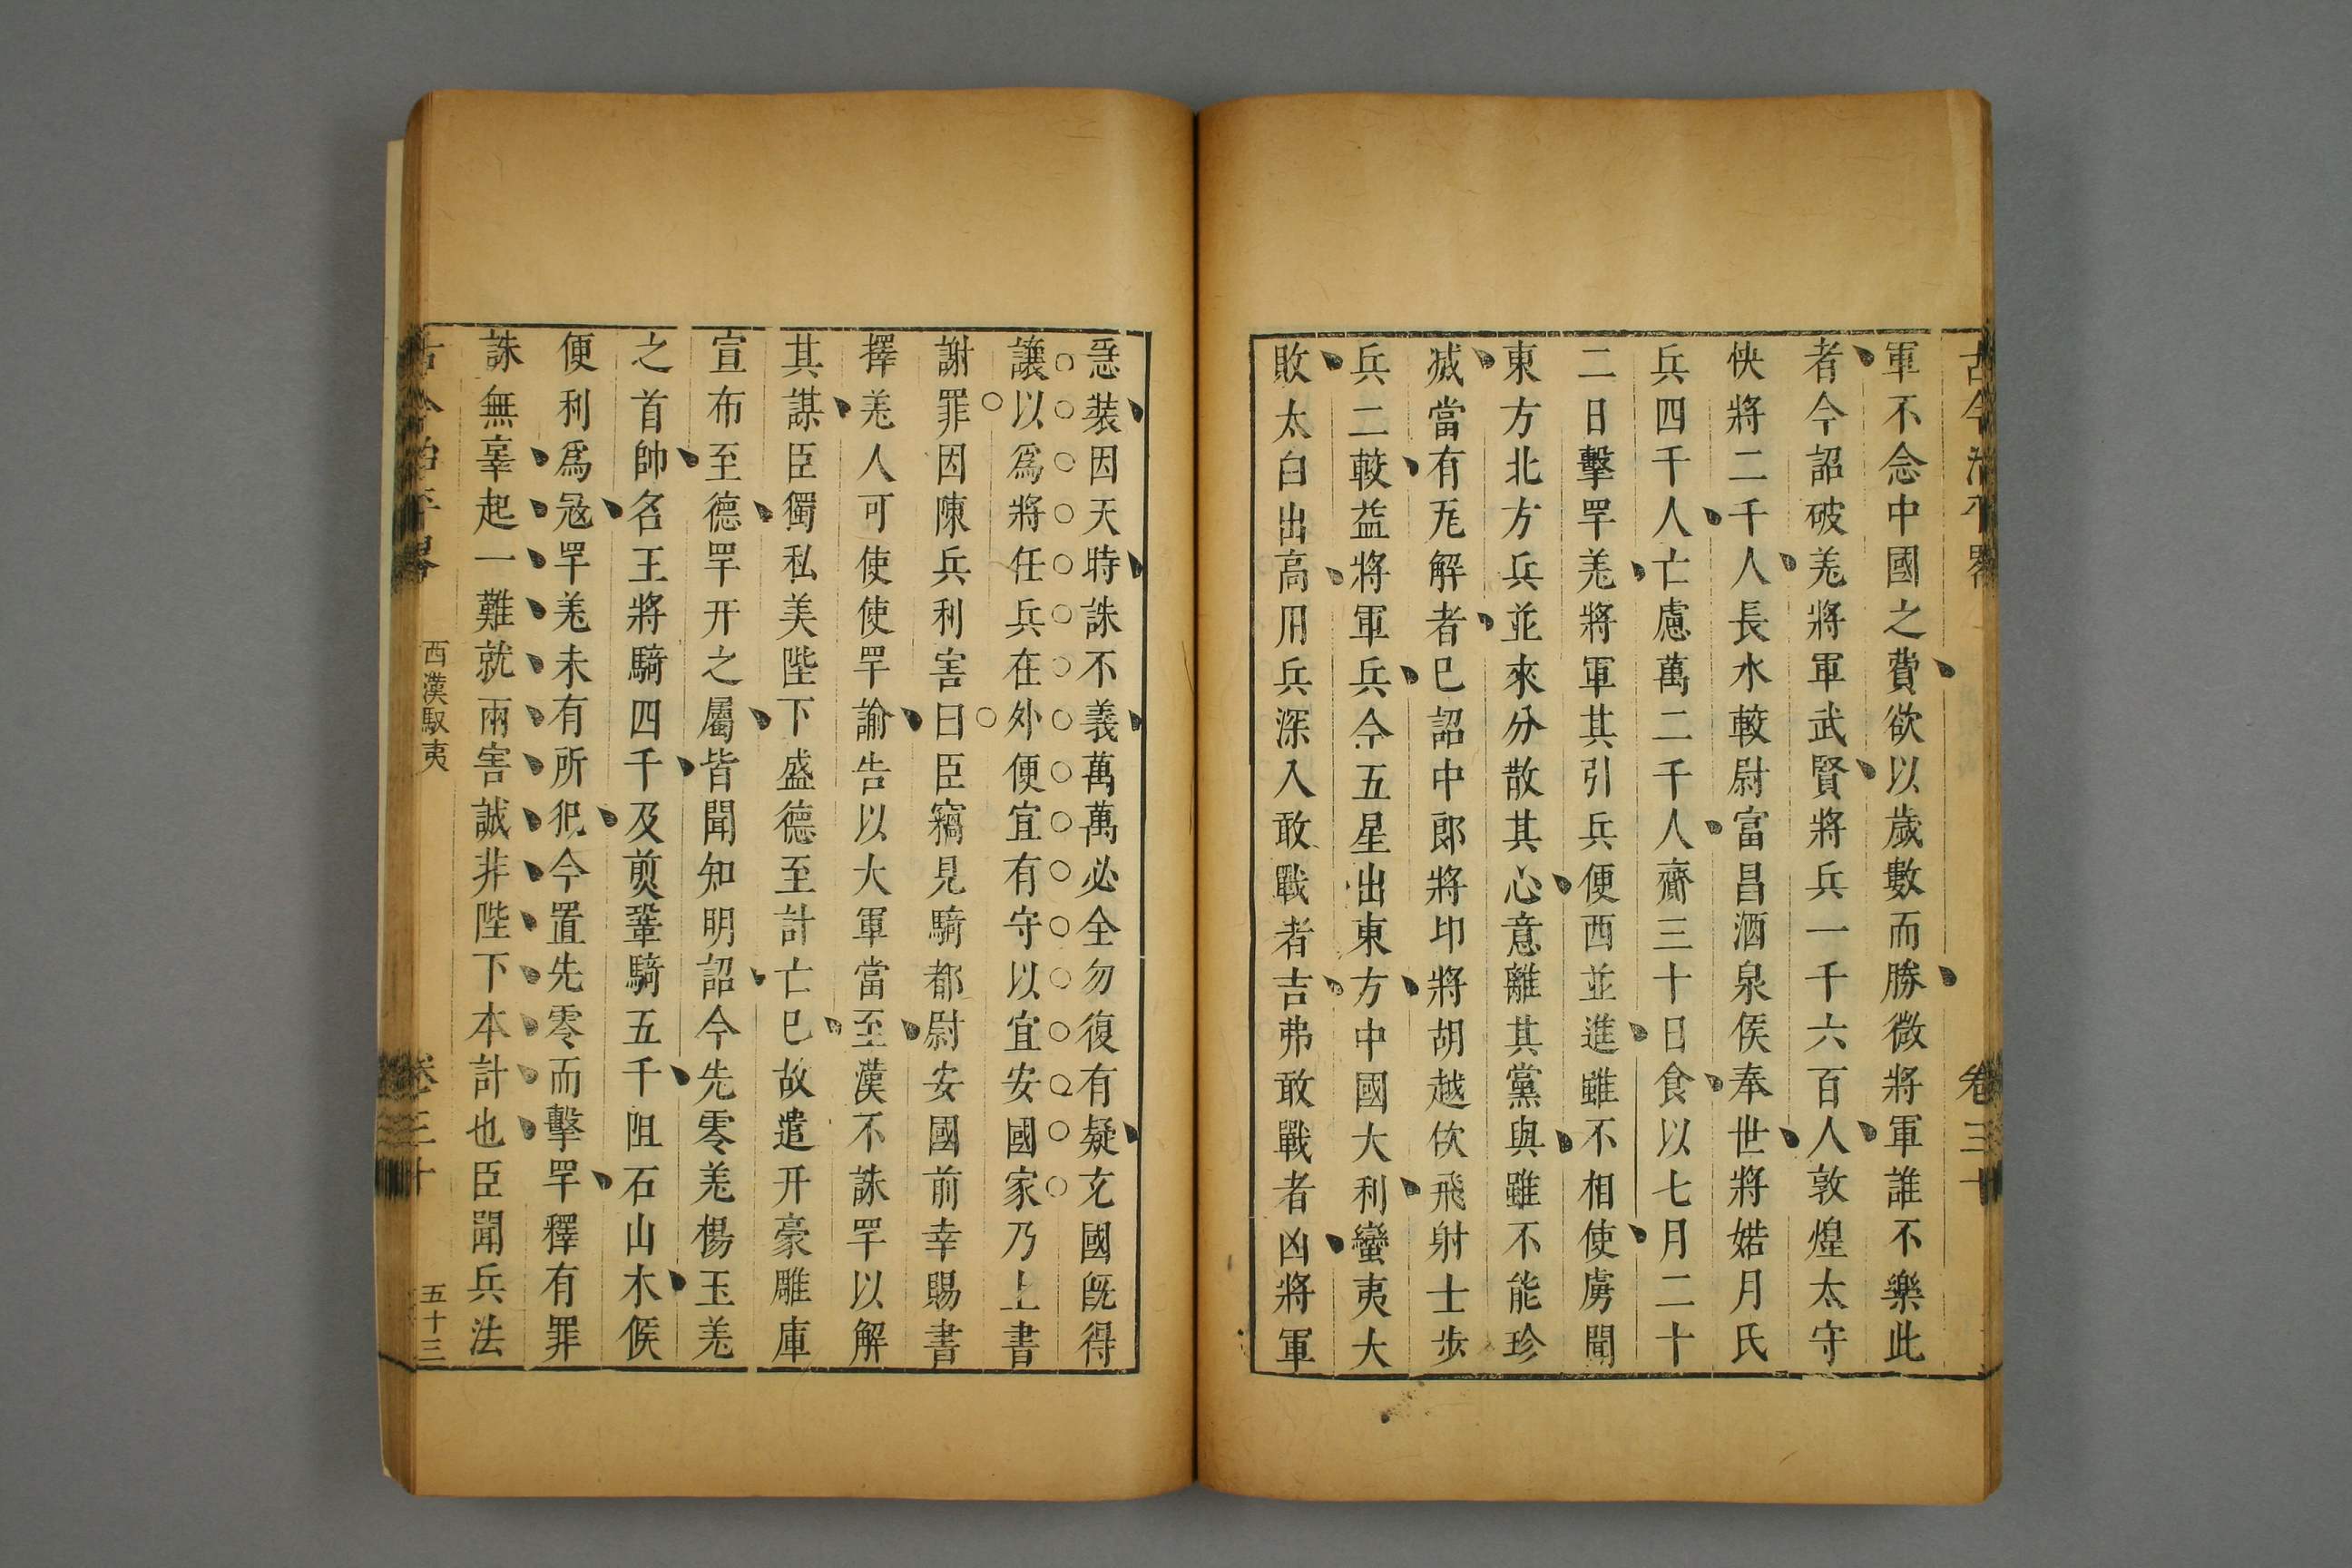 古今治平畧
卷三十
軍不念中國之費欲以歲數而勝微將軍誰不樂此
者今詔破羗將軍武賢將兵一千六百人敦煌太守
快將二千人長水較尉富昌酒泉侯奉世將婼月氏
兵四千人亡慮萬二千人齎三十日食以七月二十
二日擊罕羗將軍其引兵便西並進雖不相使虜聞
東方北方兵並來分散其心意離其黨與雖不能殄
滅當有瓦解者已詔中郎將卬將胡越佽飛射士步
兵二較益將軍兵今五星出東方中國大利蠻夷大
敗太白出高用兵深入敢戰者吉弗敢戰者凶將軍
急裝因天時誅不義萬萬必全勿復有疑充國旣得
讓以爲將任兵在外便宜有守以宜安國家乃上書
謝罪因陳兵利害曰臣竊見騎都尉安國前幸賜書
擇羗人可使使罕諭告以大軍當至漢不誅罕以解
其謀臣獨私美陛下盛德至計亡已故遣幵豪雕庫
宣布至德罕幵之屬皆聞知明詔今先零羗楊玉羗
之首帥名王將騎四千及煎鞏騎五千阻石山木候
便利爲寇罕羗未有所犯今置先零而擊罕釋有罪
誅無辜起一難就兩害誠非陛下本計也臣聞兵法
古今治平畧
西漢馭夷
卷三十
五十三